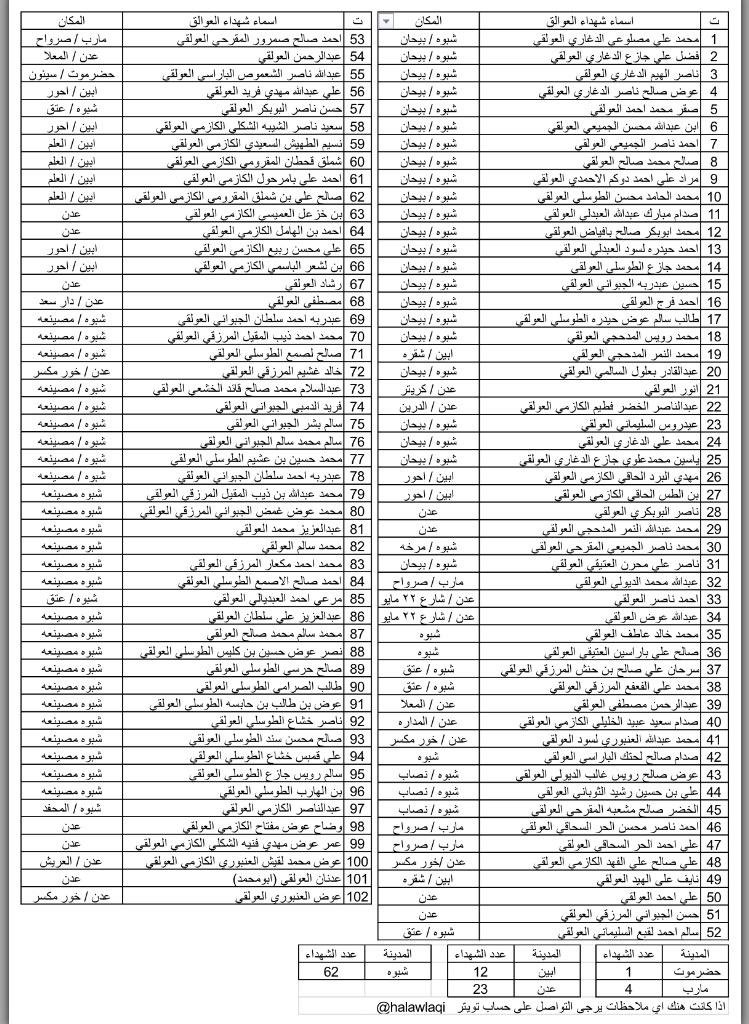 ت اسماء شهداء العوالق المكان
1 محمد علي مصلوعي الدغاري العولقي شبوه / بيحان
2 فضل علي جازع الدغاري العولقي شبوه / بيحان
3 ناصر الهيم الدغاري العولقي شبوه / بيحان
4 عوض صالح ناصر الدغاري العولقي شبوه / بيحان
5 صقر محمد احمد العولقي شبوه / بيحان
6 ابن عبدالله محسن الجميعي العولقي شبوه / بيحان
7 احمد ناصر الجميعي العولقي شبوه / بيحان
8 صالح محمد صالح العولقي شبوه / بيحان
9 مراد علي احمد دوكم الاحمدي العولقي شبوه / بيحان
10 محمد الحامد محسن الطوسلي العولقي شبوه / بيحان
11 صدام مبارك عبدالله العبدلي العولقي شبوه / بيحان
12 محمد ابوبكر صالح بافياض العولقي شبوه / بيحان
13 احمد حيدره لسود العبدلي العولقي شبوه / بيحان
14 محمد جازع الطوسلي العولقي شبوه / بيحان
15 حسين عبدربه الجبواني العولقي شبوه / بيحان
16 احمد فرج العولقي شبوه / بيحان
17 طالب سالم عوض حيدره الطوسلي العولقي شبوه / بيحان
18 محمد رويس المدحجي العولقي شبوه / بيحان
19 محمد النمر المدحجي العولقي ابين / شقره
20 عبدالقادر بعلول السالمي العولقي شبوه / بيحان
21 انور العولقي عدن / كريتر
22 عبدالناصر الخضر فطيم الكازمي العولقي عدن / الدرين
23 عيدروس السليماني العولقي شبوه / بيحان
24 محمد علي الدغاري العولقي شبوه / بيحان
25 ياسين محمدعلوي جازع الدغاري العولقي شبوه / بيحان
26 مهدي البرد الحاقي الكازمي العولقي ابين / احور
27 بن الطس الحاقي الكازمي العولقي ابين / احور
28 ناصر البوبكري العولقي عدن
29 محمد عبدالله النمر المدحجي العولقي عدن
30 محمد ناصر الجميعي المقرحي العولقي شبوه / مرخه
31 ناصر علي محرن العتيقي العولقي شبوه / بيحان
32 عبدالله محمد الديولي العولقي مارب / صرواح
33 احمد ناصر العولقي عدن / شارع ٢٢ مايو
34 عبدالله عوض العولقي عدن / شارع ٢٢ مايو
35 محمد خالد عاطف العولقي شبوه
36 صالح علي باراسين العتيقي العولقي شبوه
37 سرحان علي صالح بن حنش المرزقي العولقي شبوه / عتق
38 محمد علي الفعفع المرزقي العولقي شبوه / عتق
39 عبدالرحمن مصطفى العولقي عدن / المعلا
40 صدام سعيد عبيد الخليلي الكازمي العولقي عدن / المداره
41 محمد عبدالله العنبوري لسود العولقي عدن / خور مكسر
42 صدام صالح لحتك الباراسي العولقي شبوه
43 عوض صالح رويس غالب الديولي العولقي شبوه / نصاب
44 علي بن حسين رشيد الثوباني العولقي شبوه / نصاب
45 الخضر صالح مشعبه المقرحي العولقي شبوه / نصاب
46 احمد ناصر محسن الحر السحاقي العولقي مارب / صرواح
47 علي احمد الحر السحاقي العولقي مارب / صرواح
48 علي صالح علي الفهد الكازمي العولقي عدن /خور مكسر
49 نايف علي الهيد العولقي ابين / شقره
50 علي احمد العولقي عدن
51 حسن الجبواني المرزقي العولقي عدن
52 سالم احمد لقيع السليماني العولقي شبوه / عتق
ت اسماء شهداء العوالق المكان
53 احمد صالح صمرور المقرحي العولقي مارب / صرواح
54 عبدالرحمن العولقي عدن / المعلا
55 عبدالله ناصر الشعموص الباراسي العولقي حضرموت / سيئون
56 علي عبدالله مهدي فريد العولقي ابين / احور
57 حسن ناصر البوبكر العولقي شبوه / عتق
58 سعيد ناصر الشيبه الشكلي الكازمي العولقي ابين / احور
59 نسيم الطهيش السعيدي الكازمي العولقي ابين / العلم
60 شملق قحطان المقرومي الكازمي العولقي ابين / العلم
61 احمد علي بامرحول الكازمي العولقي ابين / العلم
62 صالح علي بن شملق المقرومي الكازمي العولقي ابين / العلم
63 بن خزعل العميسي الكازمي العولقي عدن
64 احمد بن الهامل الكازمي العولقي عدن
65 علي محسن ربيع الكازمي العولقي ابين / احور
66 بن لشعر الباسمي الكازمي العولقي ابين / احور
67 رشاد العولقي عدن
68 مصطفى العولقي عدن / دار سعد
69 عبدربه احمد سلطان الجبواني العولقي شبوه / مصينعه
70 محمد احمد ذيب المقيل المرزقي العولقي شبوه / مصينعه
71 صالح لصمع الطوسلي العولقي شبوه / مصينعه
72 خالد غشيم المرزقي العولقي عدن / خور مكسر
73 عبدالسلام محمد صالح قائد الخشعي العولقي شبوه / مصينعه
74 فريد الدمبي الجبواني العولقي شبوه / مصينعه
75 سالم بشر الجبواني العولقي شبوه / مصينعه
76 سالم محمد سالم الجبواني العولقي شبوه / مصينعه
77 محمد حسين بن عشيم الطوسلي العولقي شبوه / مصينعه
78 عبدربه احمد سلطان الجبواني العولقي شبوه / مصينعه
79 محمد عبدالله بن ذيب المقيل المرزقي العولقي شبوه مصينعه
80 محمد عوض غمض الجبواني المرزقي العولقي شبوه مصينعه
81 عبدالعزيز محمد العولقي شبوه مصينعه
82 محمد سالم العولقي شبوه مصينعه
83 محمد احمد مكعار المرزقي العولقي شبوه مصينعه
84 احمد صالح الاصمع الطوسلي العولقي شبوه مصينعه
85 مرعي احمد العبديالي العولقي شبوه / عتق
86 عبدالعزيز علي سلطان العولقي شبوه مصينعه
87 محمد سالم محمد صالح العولقي شبوه مصينعه
88 نصر عوض حسين بن كليس الطوسلي العولقي شبوه مصينعه
89 صالح حرسي الطوسلي العولقي شبوه مصينعه
90 طالب الصرامي الطوسلي العولقي شبوه مصينعه
91 عوض بن طالب بن حابسه الطوسلي العولقي شبوه مصينعه
92 ناصر خشاع الطوسلي العولقي شبوه مصينعه
93 صالح محسن سند الطوسلي العولقي شبوه مصينعه
94 علي قمبس خشاع الطوسلي العولقي شبوه مصينعه
95 سالم رويس جازع الطوسلي العولقي شبوه مصينعه
96 بن الهارب الطوسلي العولقي شبوه مصينعه
97 عبدالناصر الكازمي العولقي شبوه / المحفد
98 وضاح عوض مفتاح الكازمي العولقي عدن
99 عمر عوض مهدي فنيه الشكلي الكازمي العولقي عدن
100 عوض محمد لقيش العنبوري الكازمي العولقي عدن / العريش
101 عدنان العولقي (ابومحمد) عدن
102 عوض العنبوري العولقي عدن / خور مكسر
المدينة عدد الشهداء المدينة عدد الشهداء المدينة عدد الشهداء
حضرموت 1 ابين 12 شبوه 62
مارب 4 عدن 23
اذا كانت هنك اي ملاحظات يرجى التواصل على حساب تويتر @halawlaqi